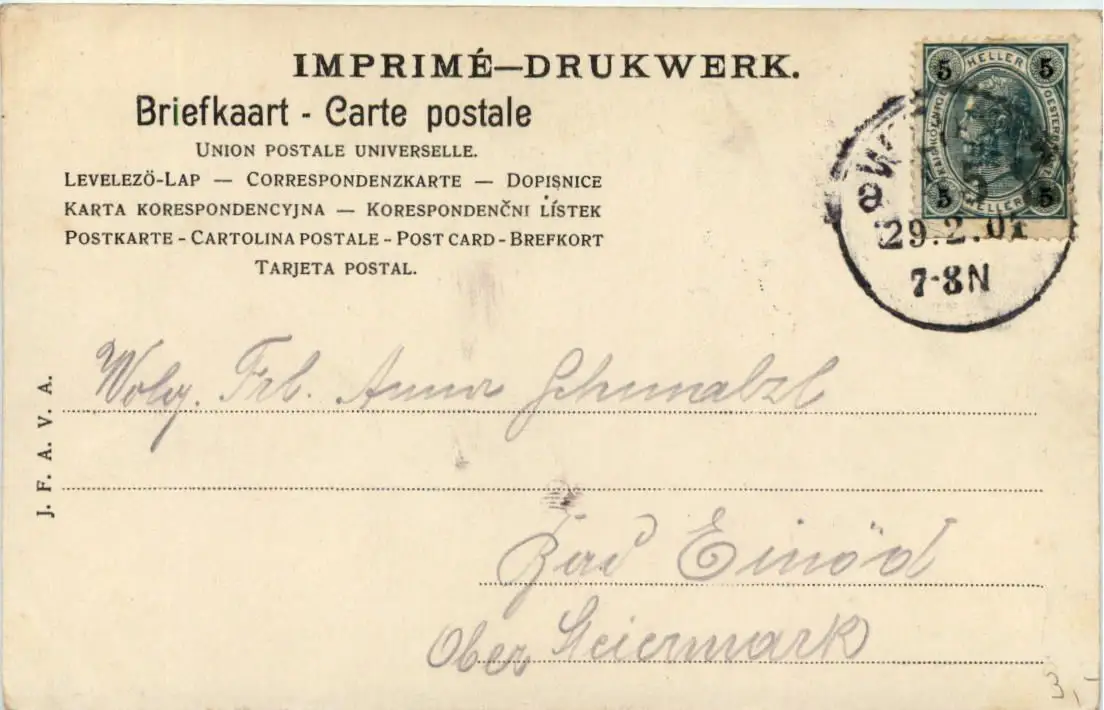 IMPRIMÉ—DRUKWERK.
Briefkaart - Carte postale
UNION POSTALE UNIVERSELLE.
LEVELEZÖ-LAP — CORRESPONDENZKARTE — DOPISNICE
KARTA KORESPONDENCYJNA — KORESPONDENČNI LÍSTEK
POSTKARTE - CARTOLINA POSTALE - POST CARD - BREFKORT
TARJETA POSTAL.
5 HELLER 5
5 HELLER 5
29.2.01
7-8N
J. F. A. V. A.
Wolg. Frl. Anna Schmalzl
Bad Einöd
Ober Steiermark
3,-